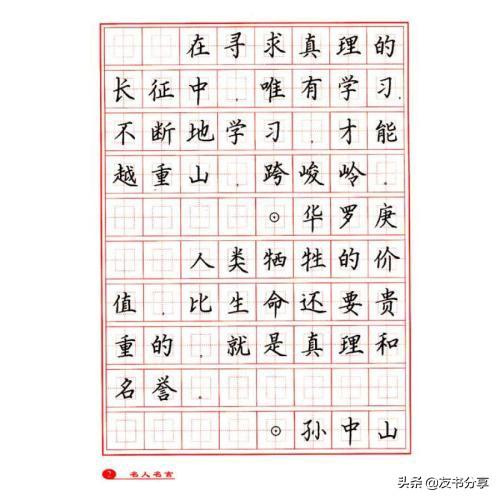 在寻求真理的
长征中，唯有学习，
不断地学习，才能
越重山，跨峻岭。
⊙华罗庚
人类牺牲的价
值，比生命还要贵
重的，就是真理和
名誉。
⊙孙中山
名人名言
头条 @友书分享